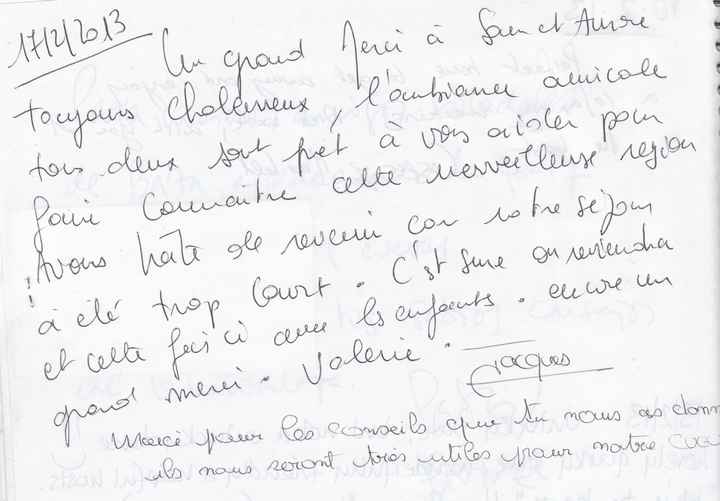 17/2/2013
Un grand Merci à Sam et Aurore
toujours chaleureux, l'ambiance amicale
tous deux sont prêt à vous aider pour
faire connaître cette merveilleuse region
Avons hâte de revenir car notre séjour
a été trop court. C'st sure on reviendra
et cette fois ci avec ls enfants. encore un
grand merci. Valerie. Jacques
Merci pour les conseils que tu nous as donn
ils nous seront très utiles pour notre